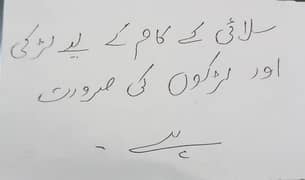 سلائی کے کام کے لیے لڑکی
اور لڑکوں کی ضرورت
ہے ۔